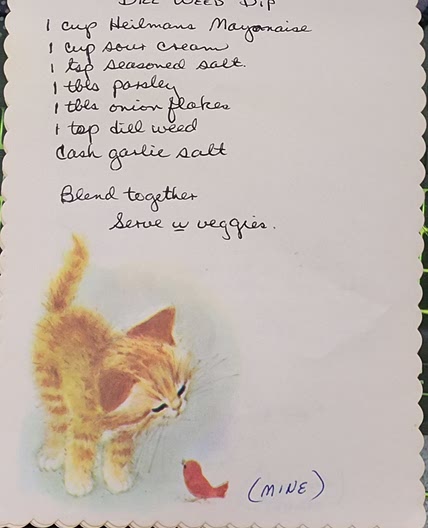 DILL WEED DIP
1 cup Heilmans Mayonaise
1 cup sour cream
1 tsp seasoned salt.
1 tbls parsley
1 tbls onion flakes
1 tsp dill weed
Dash garlic salt
Blend together
Serve w veggies.
(MINE)